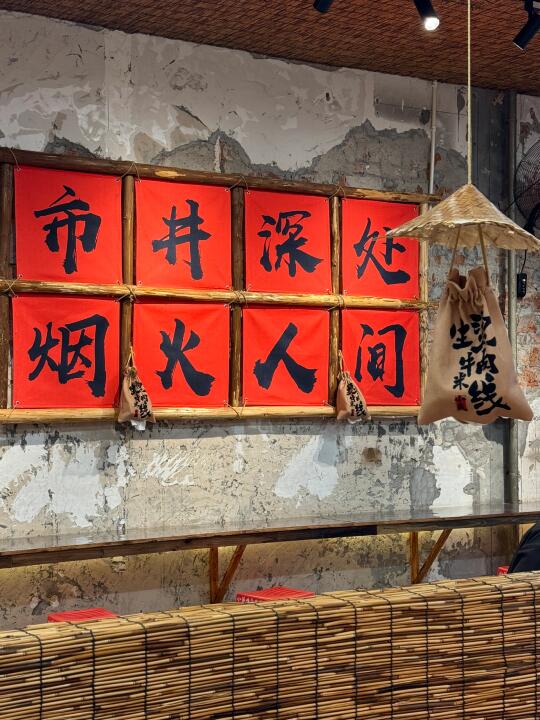 市井深处
烟火人间
现炒肉
生牛米线